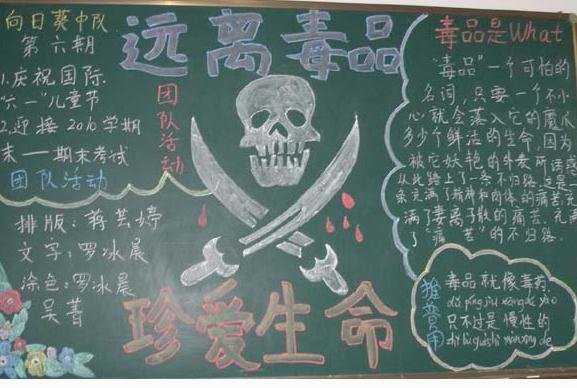 向日葵中队
第六期
1.庆祝国际
“六一”儿童节
2.迎接2010学期
末——期末考试
团队活动
排版：蒋芸婷
文字：罗冰晨
涂色：罗冰晨
吴菁
远离毒品
团队活动
珍爱生命
毒品是What
“毒品”一个可怕的
名词，只要一个不小
心就会落入它的魔爪
多少个鲜活的生命，因为
被它妖艳的外表所诱惑
从此踏上了一条不归路，这是一
条充满了精神和肉体的痛苦，充
满了妻离子散的痛苦，充满
了“痛苦”的不归路。
毒品就像毒药
dú pǐn jiù xiàng dú yào
只不过是慢性的